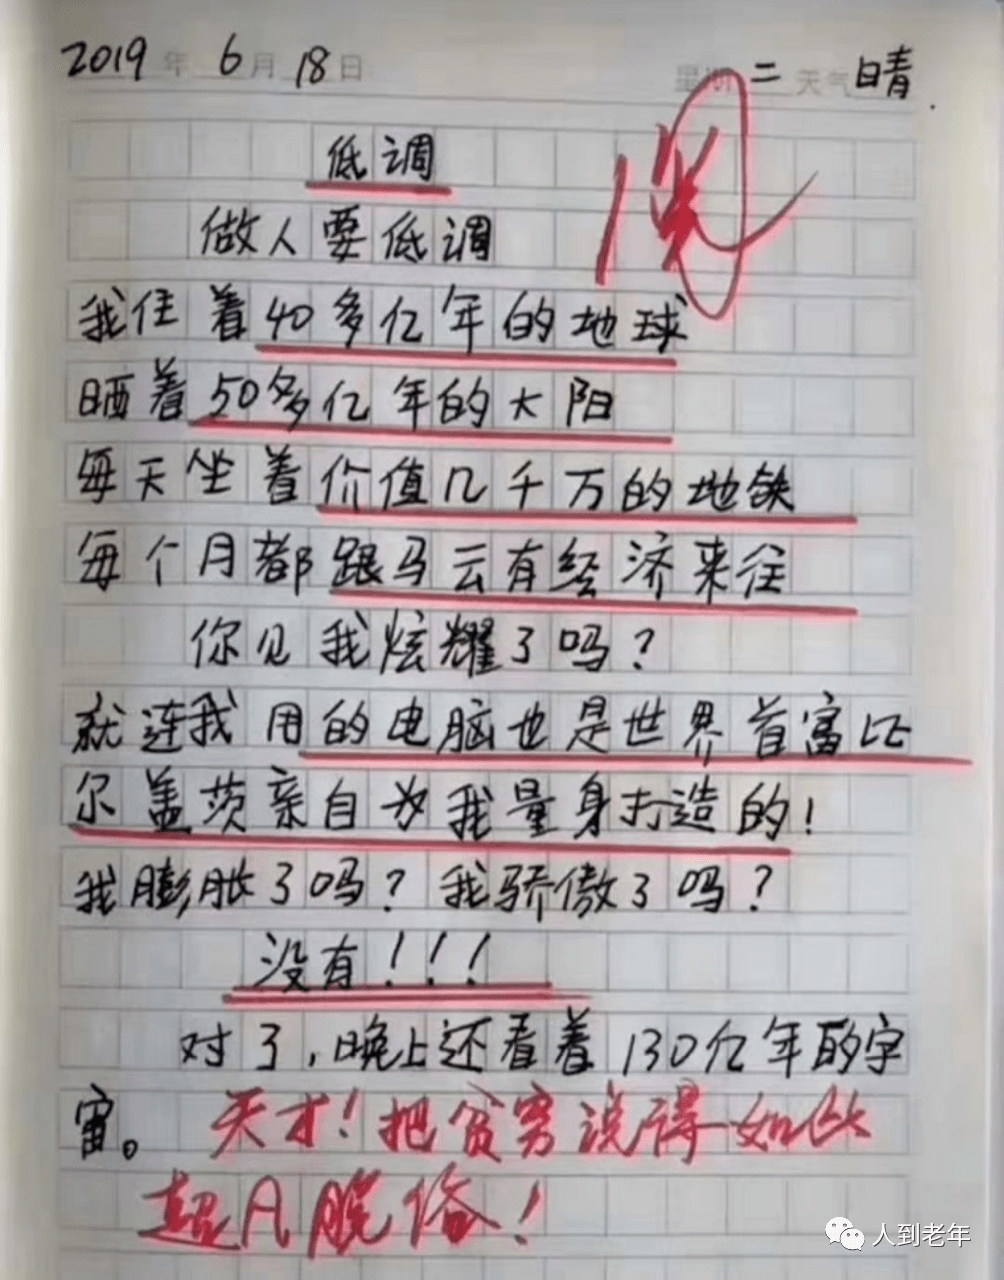 2019年6月18日 星期二 天气晴
低调
做人要低调
我住着40多亿年的地球
晒着50多亿年的大阳
每天坐着价值几千万的地铁
每个月都跟马云有经济来往
你见我炫耀了吗?
就连我用的电脑也是世界首富比
尔盖茨亲自为我量身打造的!
我膨胀了吗?我骄傲了吗?
没有!!!
对了,晚上还看着130亿年的宇
宙。天才!把贫穷说得如此
超凡脱俗!
人到老年